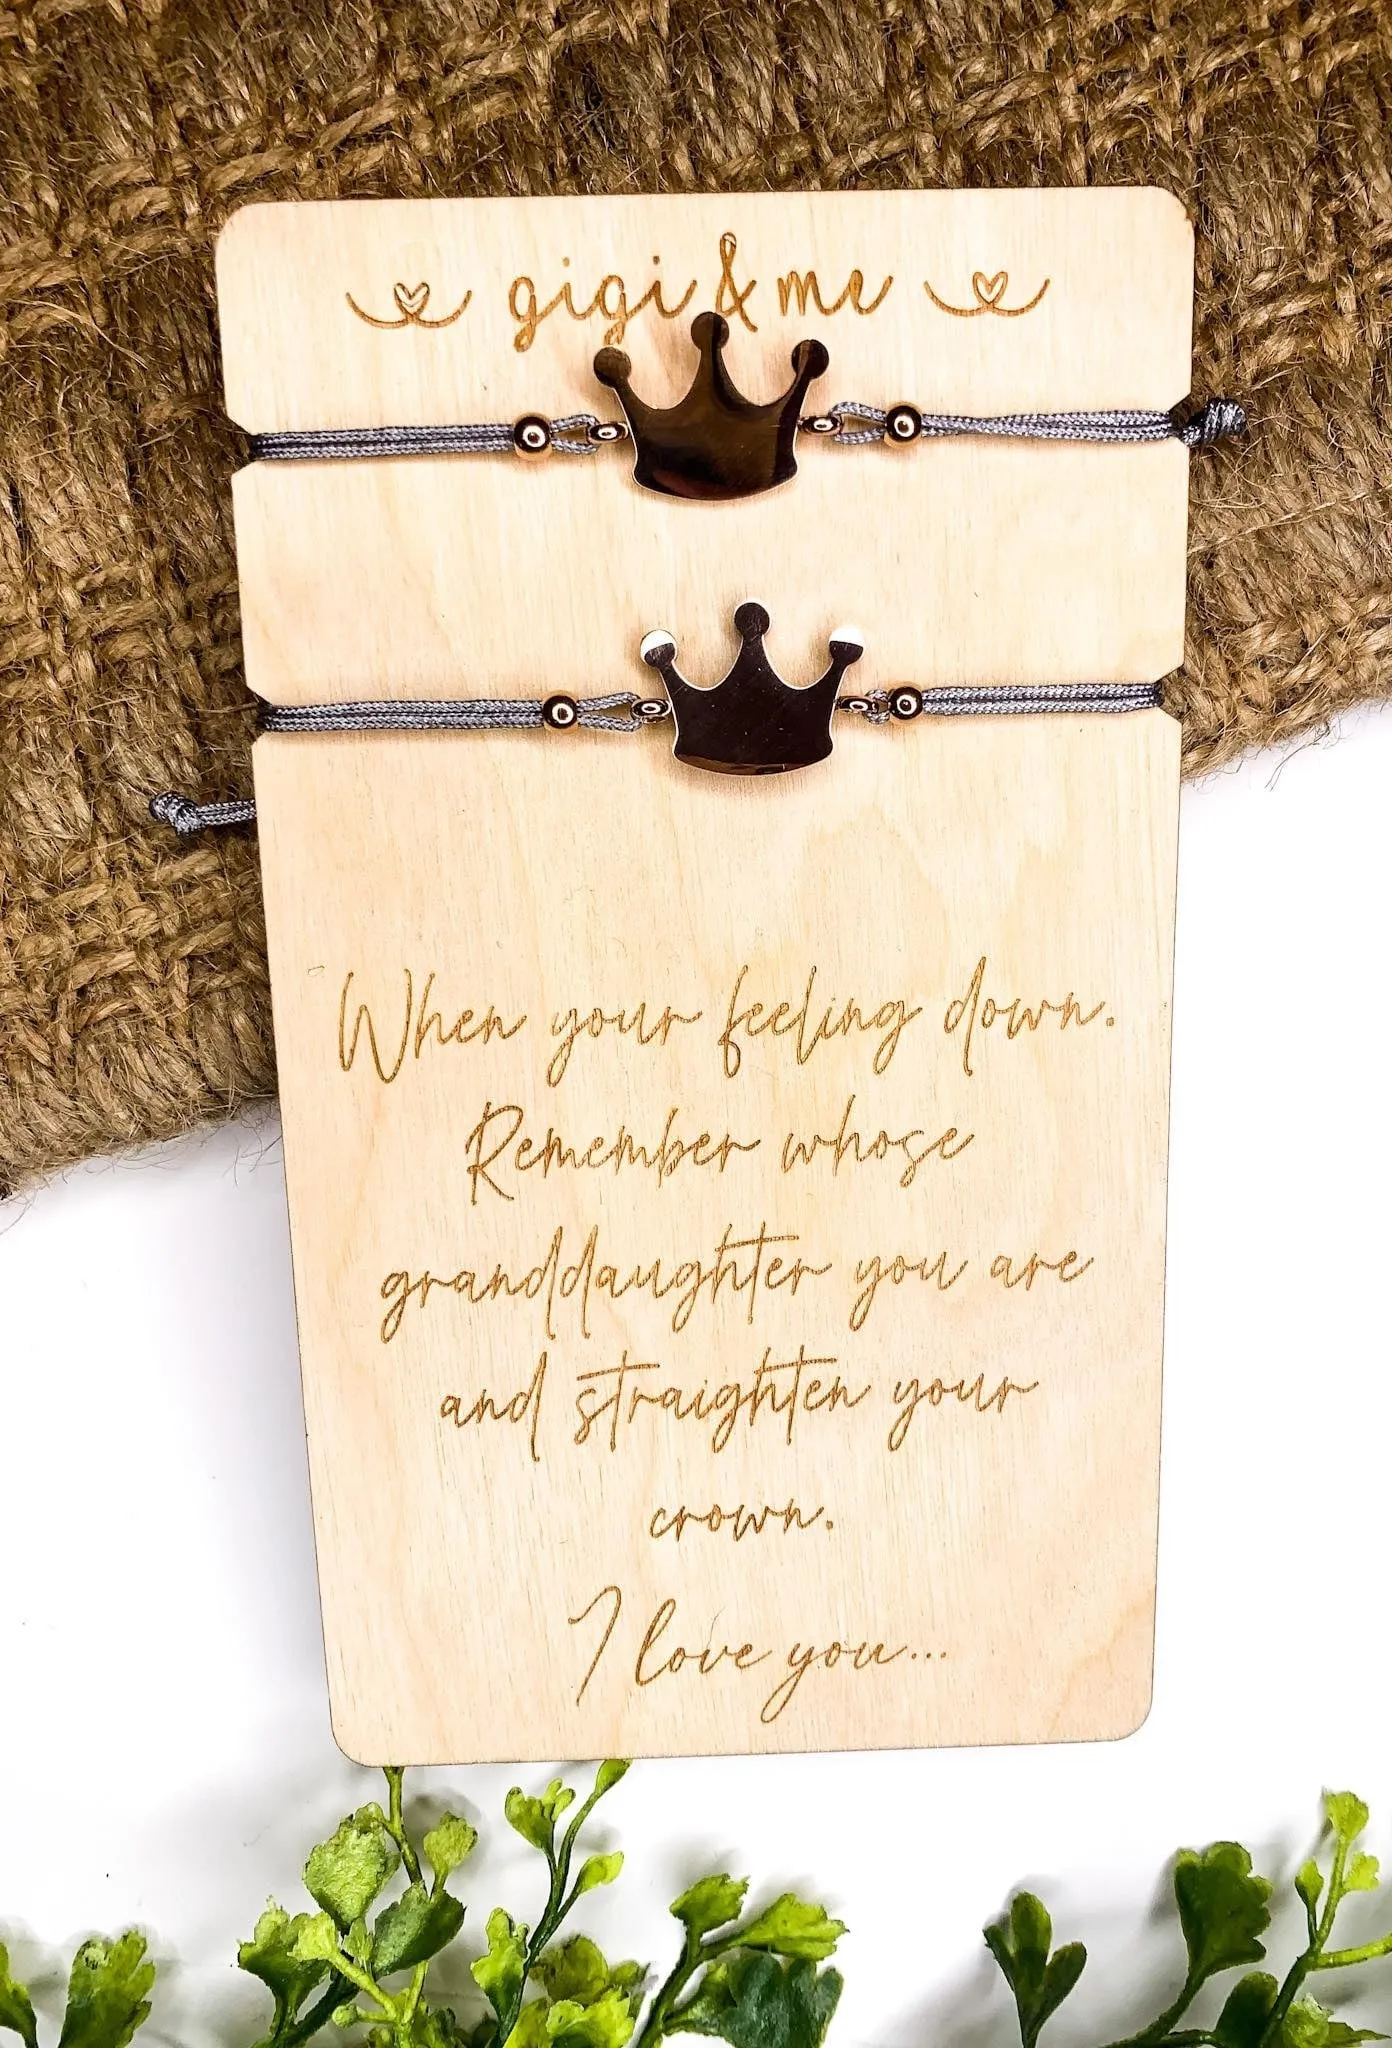 gigi & me
When your feeling down.
Remember whose
granddaughter you are
and straighten your
crown.
I love you...